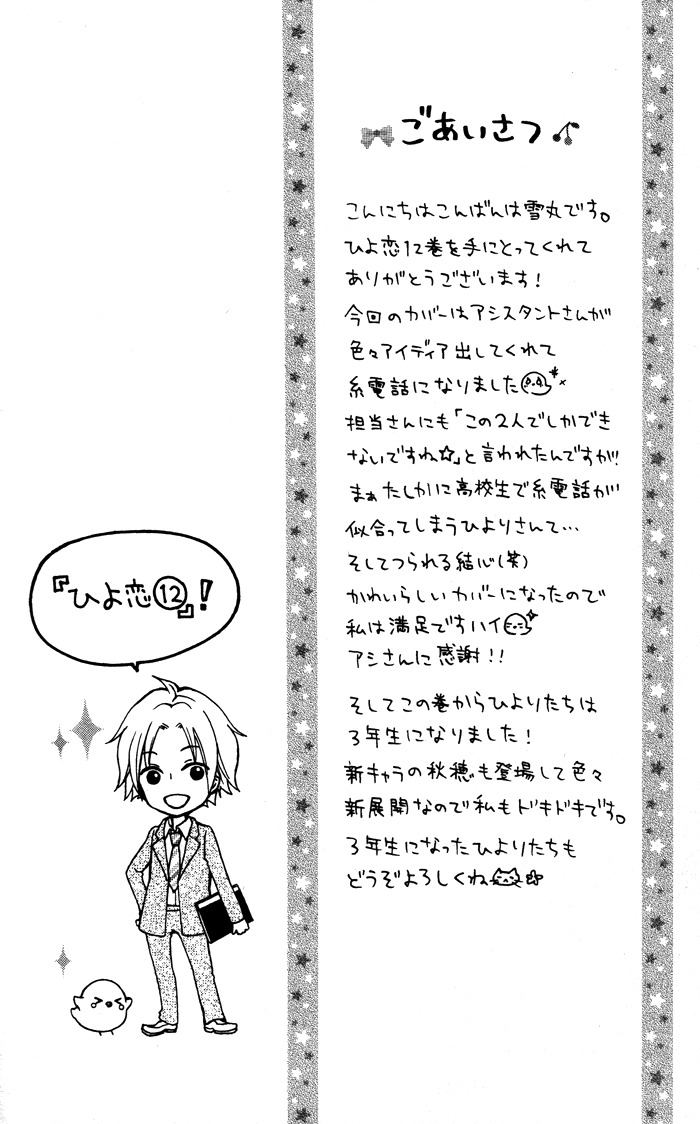 ごあいさつ
こんにちはこんばんは雪丸です。
ひよ恋12巻を手にとってくれて
ありがとうございます!
今回のカバーはアシスタントさんが
色々アイディア出してくれて
糸電話になりました
担当さんにも「この2人でしかでき
ないですね☆」と言われたんですが!
まぁたしかに高校生で糸電話が
似合ってしまうひよりさんて…
そしてつられる結心(笑)
かわいらしいカバーになったので
私は満足ですハイ
アシさんに感謝!!
そしてこの巻からひよりたちは
3年生になりました!
新キャラの秋穂も登場して色々
新展開なので私もドキドキです。
3年生になったひよりたちも
どうぞよろしくね
『ひよ恋⑫』!